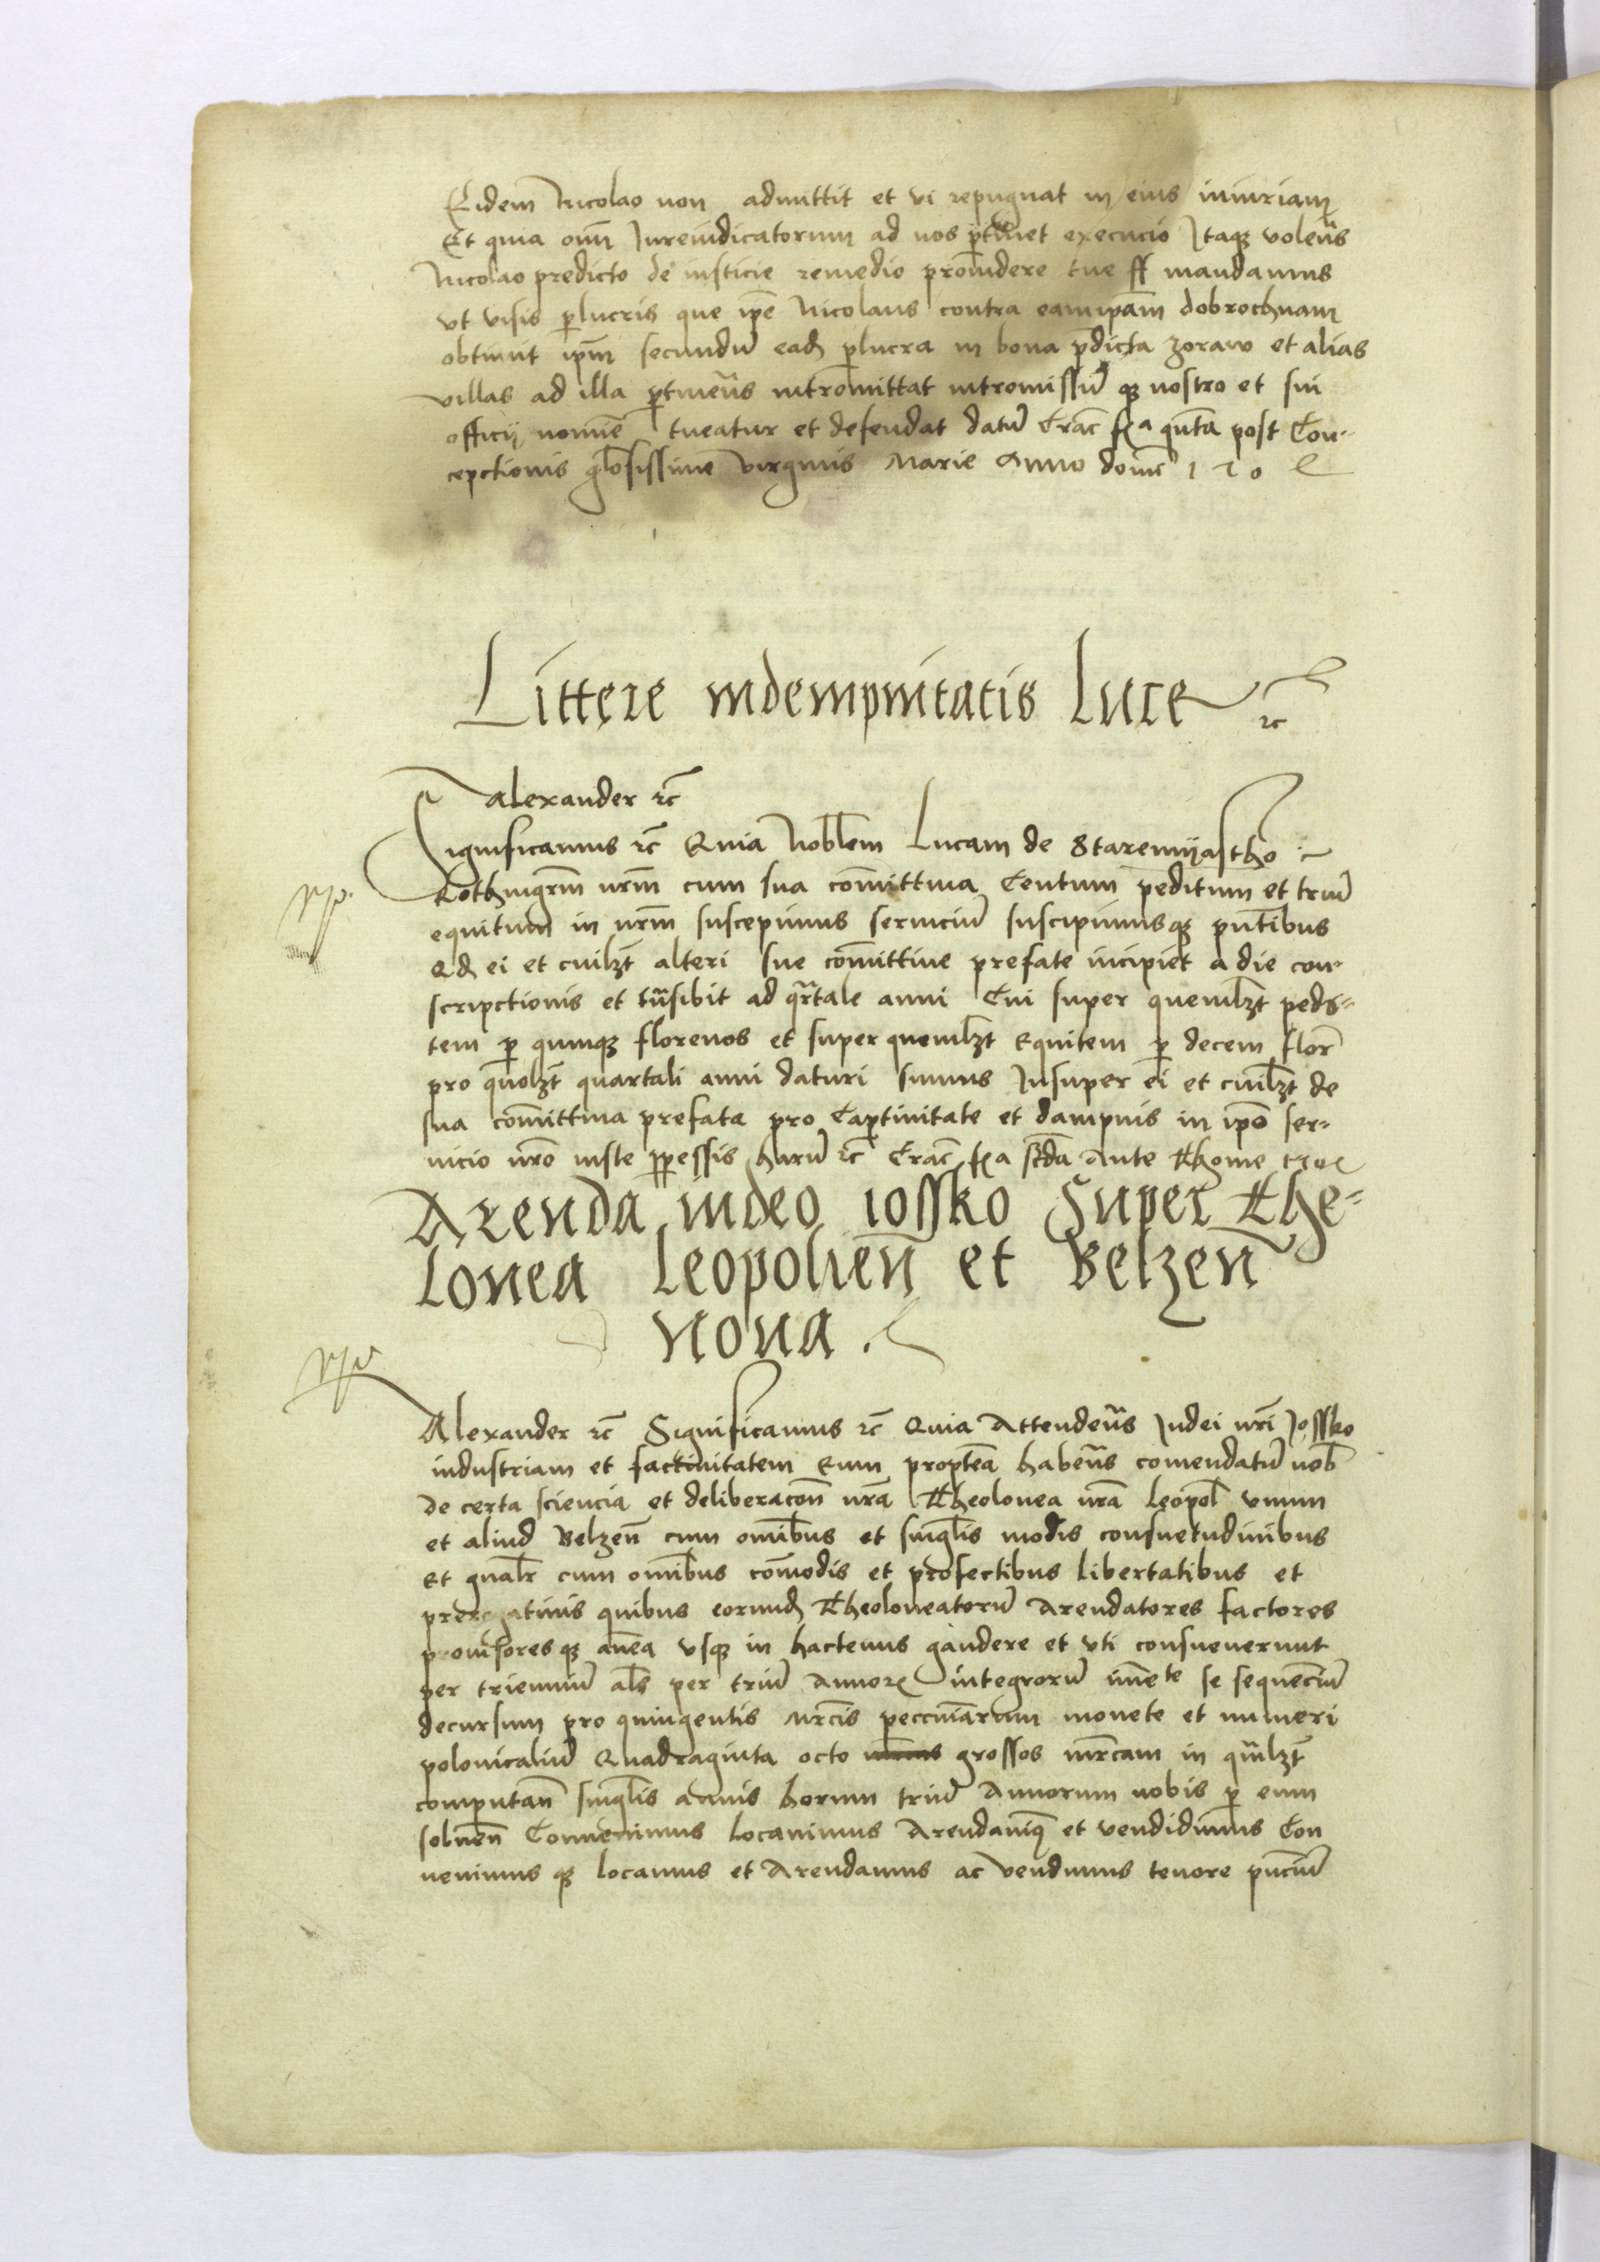 Eidem Nicolao non admittit et vi repugnat in eius iniuriam
Et quia oīm Jureiudicatorum ad nos ptinet execucio Itaqȝ volen̄s
Nicolao predicto de iusticie remedio prouidere tue ff mandamus
vt visis perlucris que ip̄e Nicolaus contra eamip̄am dobrochnam
obtinuit ip̄m secundū eadē perlucra in bona p̄dicta zoraw et alias
villas ad illa ptinen̄s intromittat intromissūqȝ nostro et sui
officij nomine tueatur et defendat datū Crac̄ fᵃ qn̄ta post Con-
cepctionis glosissime virginis Marie Anno domī 1 5 0
Littere indempnitatis Luce ⁊c
Alexander ⁊c̄
Significamus ⁊c̄ Quia Nobl̄em Lucam de Staremyastho
Rothmgr̄m nr̄m cum sua com̄ittiua Centum peditum et triū
equitum in nr̄m suscepimus seruiciū suscipimusqȝ pn̄tibus
Qd̄ ei et cuilȝt alteri sue com̄ittiue prefate incipiet a die con-
scripctionis et tn̄sibit ad qr̄tale anni Cui super quemlȝt pedi-
tem p quinqȝ florenos et super quemlȝt Equitem p decem flor̄
pro quolȝt quartali anni daturi sumus Insuper ei et cuilȝt de
sua com̄ittiua prefata pro Captiuitate et dampnis in ip̄o ser-
uicio nr̄o iuste ppessis harū ⁊c̄ Crac̄ fᵃ scd̄a Ante Thome
Arenda iudeo iossko Super The-
lonea Leopolien̄ et Belzen̄
noua.
Alexander ⁊c̄ Significamus ⁊c̄ Quia Attenden̄s Judei nr̄i Jossko
industriam et factiuitatem Eum propt̄ea haben̄s comendatū nob̄
de certa sciencia et deliberacōn nr̄a Theolonea nr̄a Leopol̄ vnum
et aliud Belzen̄ cum om̄ibus et singl̄is modis consuetudinibus
Et gn̄alr cum om̄ibus com̄odis et profectibus libertatibus et
prerogatiuis quibus eorundē Theoloneatorū Arendatores factores
prouisoresqȝ an̄ea vsqȝ in hactenus gaudere et vti consueuerunt
per trienniū al̄s per triū Annorꝝ integrorū im̄ete se sequenciū
decursum pro quingentis mr̄cis peccuniarum monete et numeri
polonicaliū Quadraginta octo grossos mr̄cam in qualȝt
computan̄ singl̄is annis horum triū Annorum nobis p eum
soluen̄ Conuenimus locauimus Arendauimqȝ et vendidimus Con
uenimusqȝ locamus et Arendamus ac vendimus tenore pn̄ciū